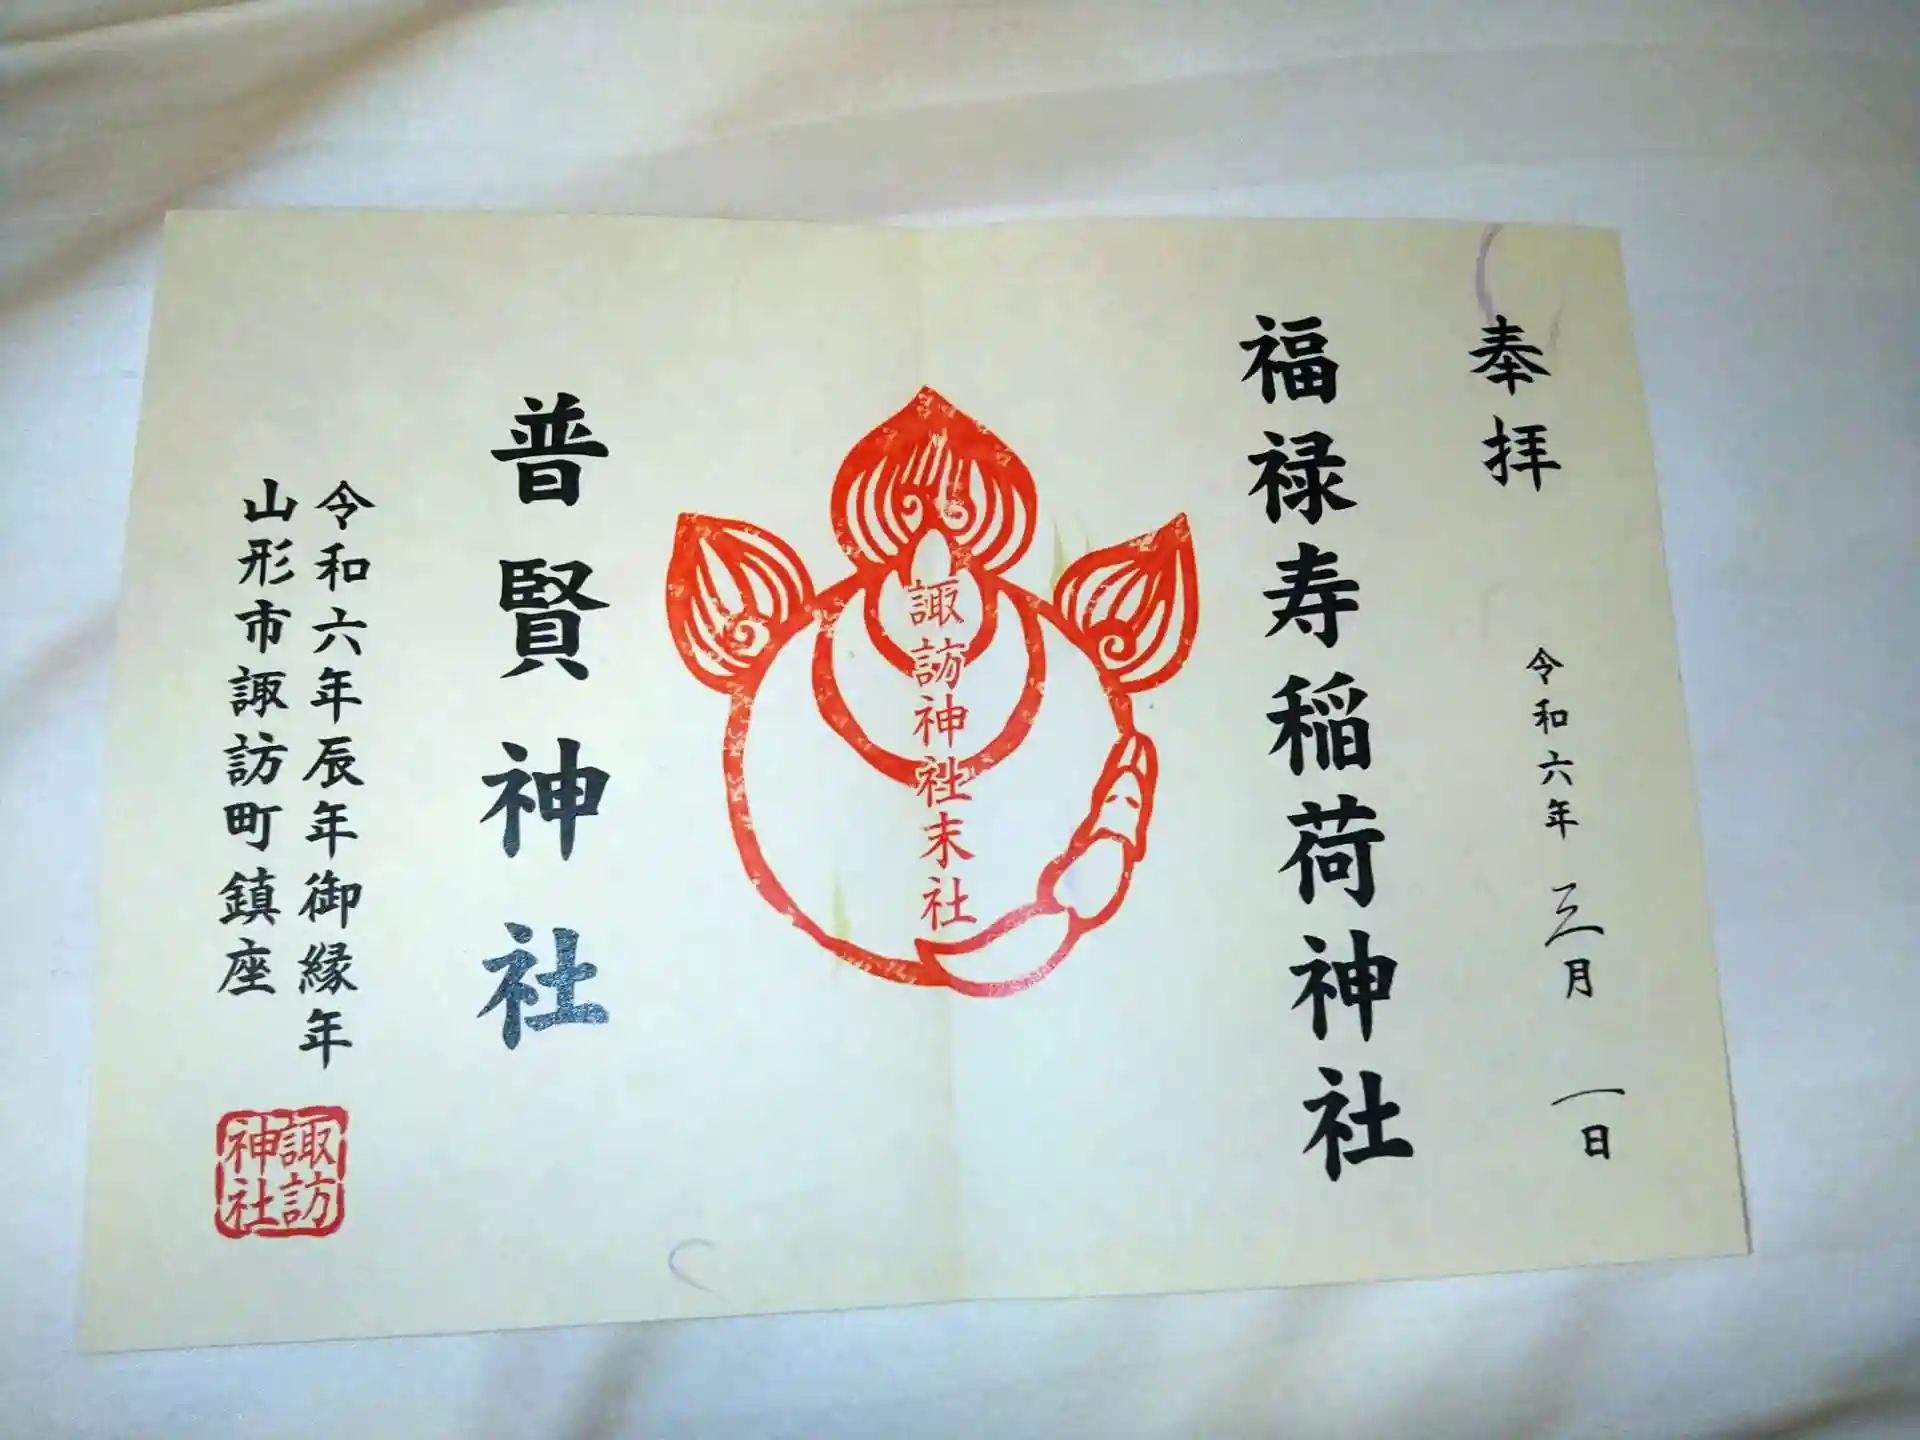 奉拝
令和六年 三月 一日
福禄寿稲荷神社
諏訪神社末社
普賢神社
令和六年辰年御縁年
山形市諏訪町鎮座
諏訪
神社